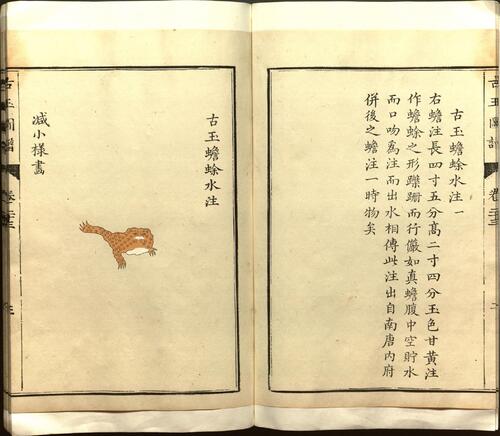 古玉蟾蜍水注一
右蟾注長四寸五分高二寸四分玉色甘黃注
作蟾蜍之形蹣跚而行儼如真蟾腹中空貯水
而口吻爲注而出水相傳此注出自南唐内府
併後之蟾注一時物矣
古玉蟾蜍水注
减小樣畫
古玉圖譜